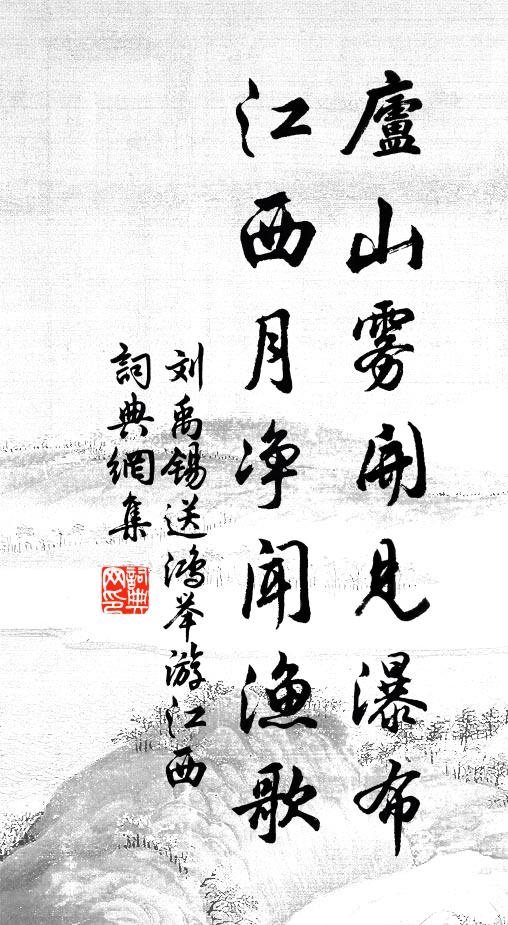 廬山雾開見瀑布
江西月净聞漁歌
刘禹锡送鸿举游江西
詞典網集
詞典网印